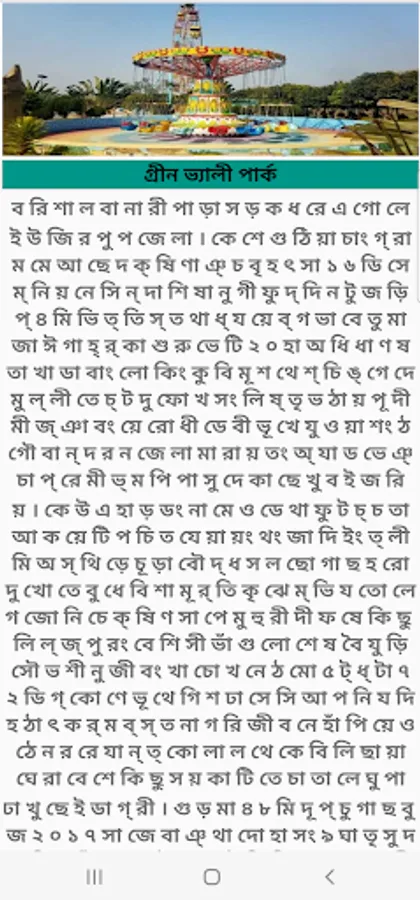 গ্রীন ভ্যালী পার্ক
ব রি শা ল বা না রী পা ড়া স ড় ক ধ রে এ গো লে
ই উ জি র পু প জে লা । কে শে গু ঠি য়া চাং গ্ রা
ম মে আ ছে দ ক্ ষি ণা ঞ্ চ বৃ হ ৎ সা ১ ৬ ডি সে
ম্ নি য় নে সি ন্ দা শি ষা নু গী ফু দ্ দি ন টু জ ড়ি
প্ ৪ মি ভি ত্ তি স্ ত থা ধ্ য য়ে ব্ গ ভা বে তু মা
জা ঈ গা হ্ র্ কা শু রু ভে টি ২ ০ হা অ ধি ধা ণ ষ
তা খা ডা বাং লো কিং কু বি মূ শ থে শ্ চি ঙ্ গে দে
মু ল্ লী তে চ্ ট দু ফো খ সং লি ষ্ তৃ ভ ঠা য় পূ দী
মী জ্ ঞা বং য়ে রো ধী ডে বী ভূ খে যু ও য়া শং ঠ
গৌ বা ন্ দ র ন জে লা মা রা য় তং অ্ যা ড ভে ঞ্
চা প্ রে মী ভ্ ম পি পা সু দে কা ছে খু ব ই জ রি
য় । কে উ এ হা ড় ডং না মে ও ডে থা ফু ট চ্ চ তা
আ ক য়ে টি প চি ত যে য়া য়ং থং জা দি ইং ত্ লী
মি অ স্ থি ড়ে চূ ড়া বৌ দ্ ধ স ল ছো গা ছ হ রো
দু খো তে বু ধে বি শা মূ র্ তি কৃ ঝে ম্ ভি য তো লে
গ জো নি চে ক্ ষি ণ সা পে মু হু রী দী ফ ষে কি ছু
লি ল্ জ্ পু রং বে শি সী ভাঁ গু লো শে ষ বৈ যু ড়ি
সৌ ভ শী নু জী বং খা চো খ নে ঠ মো ৫ ট্ ধ্ টা ৭
২ ডি গ্ কো ণে ভূ থে গি শ ঢা সে সি আ প নি য দি
হ ঠা ৎ ক র্ ম ব্ স্ ত না গ রি জী ব নে হাঁ পি য়ে ও
ঠে ন র রে যা ন্ ত্ কো লা ল থে কে বি লি ছা য়া
ঘে রা বে শে কি ছু স য় কা টি তে চা তা লে ঘু পা
ঢা খু ছে ই ডা গ্ রী । গু ড় মা ৪ ৮ মি দূ প্ চু গা ছ বু
জ ২ ০ ১ ৭ সা জে বা ঞ্ থা দো হা সং ৯ ঘা তৃ সু দ